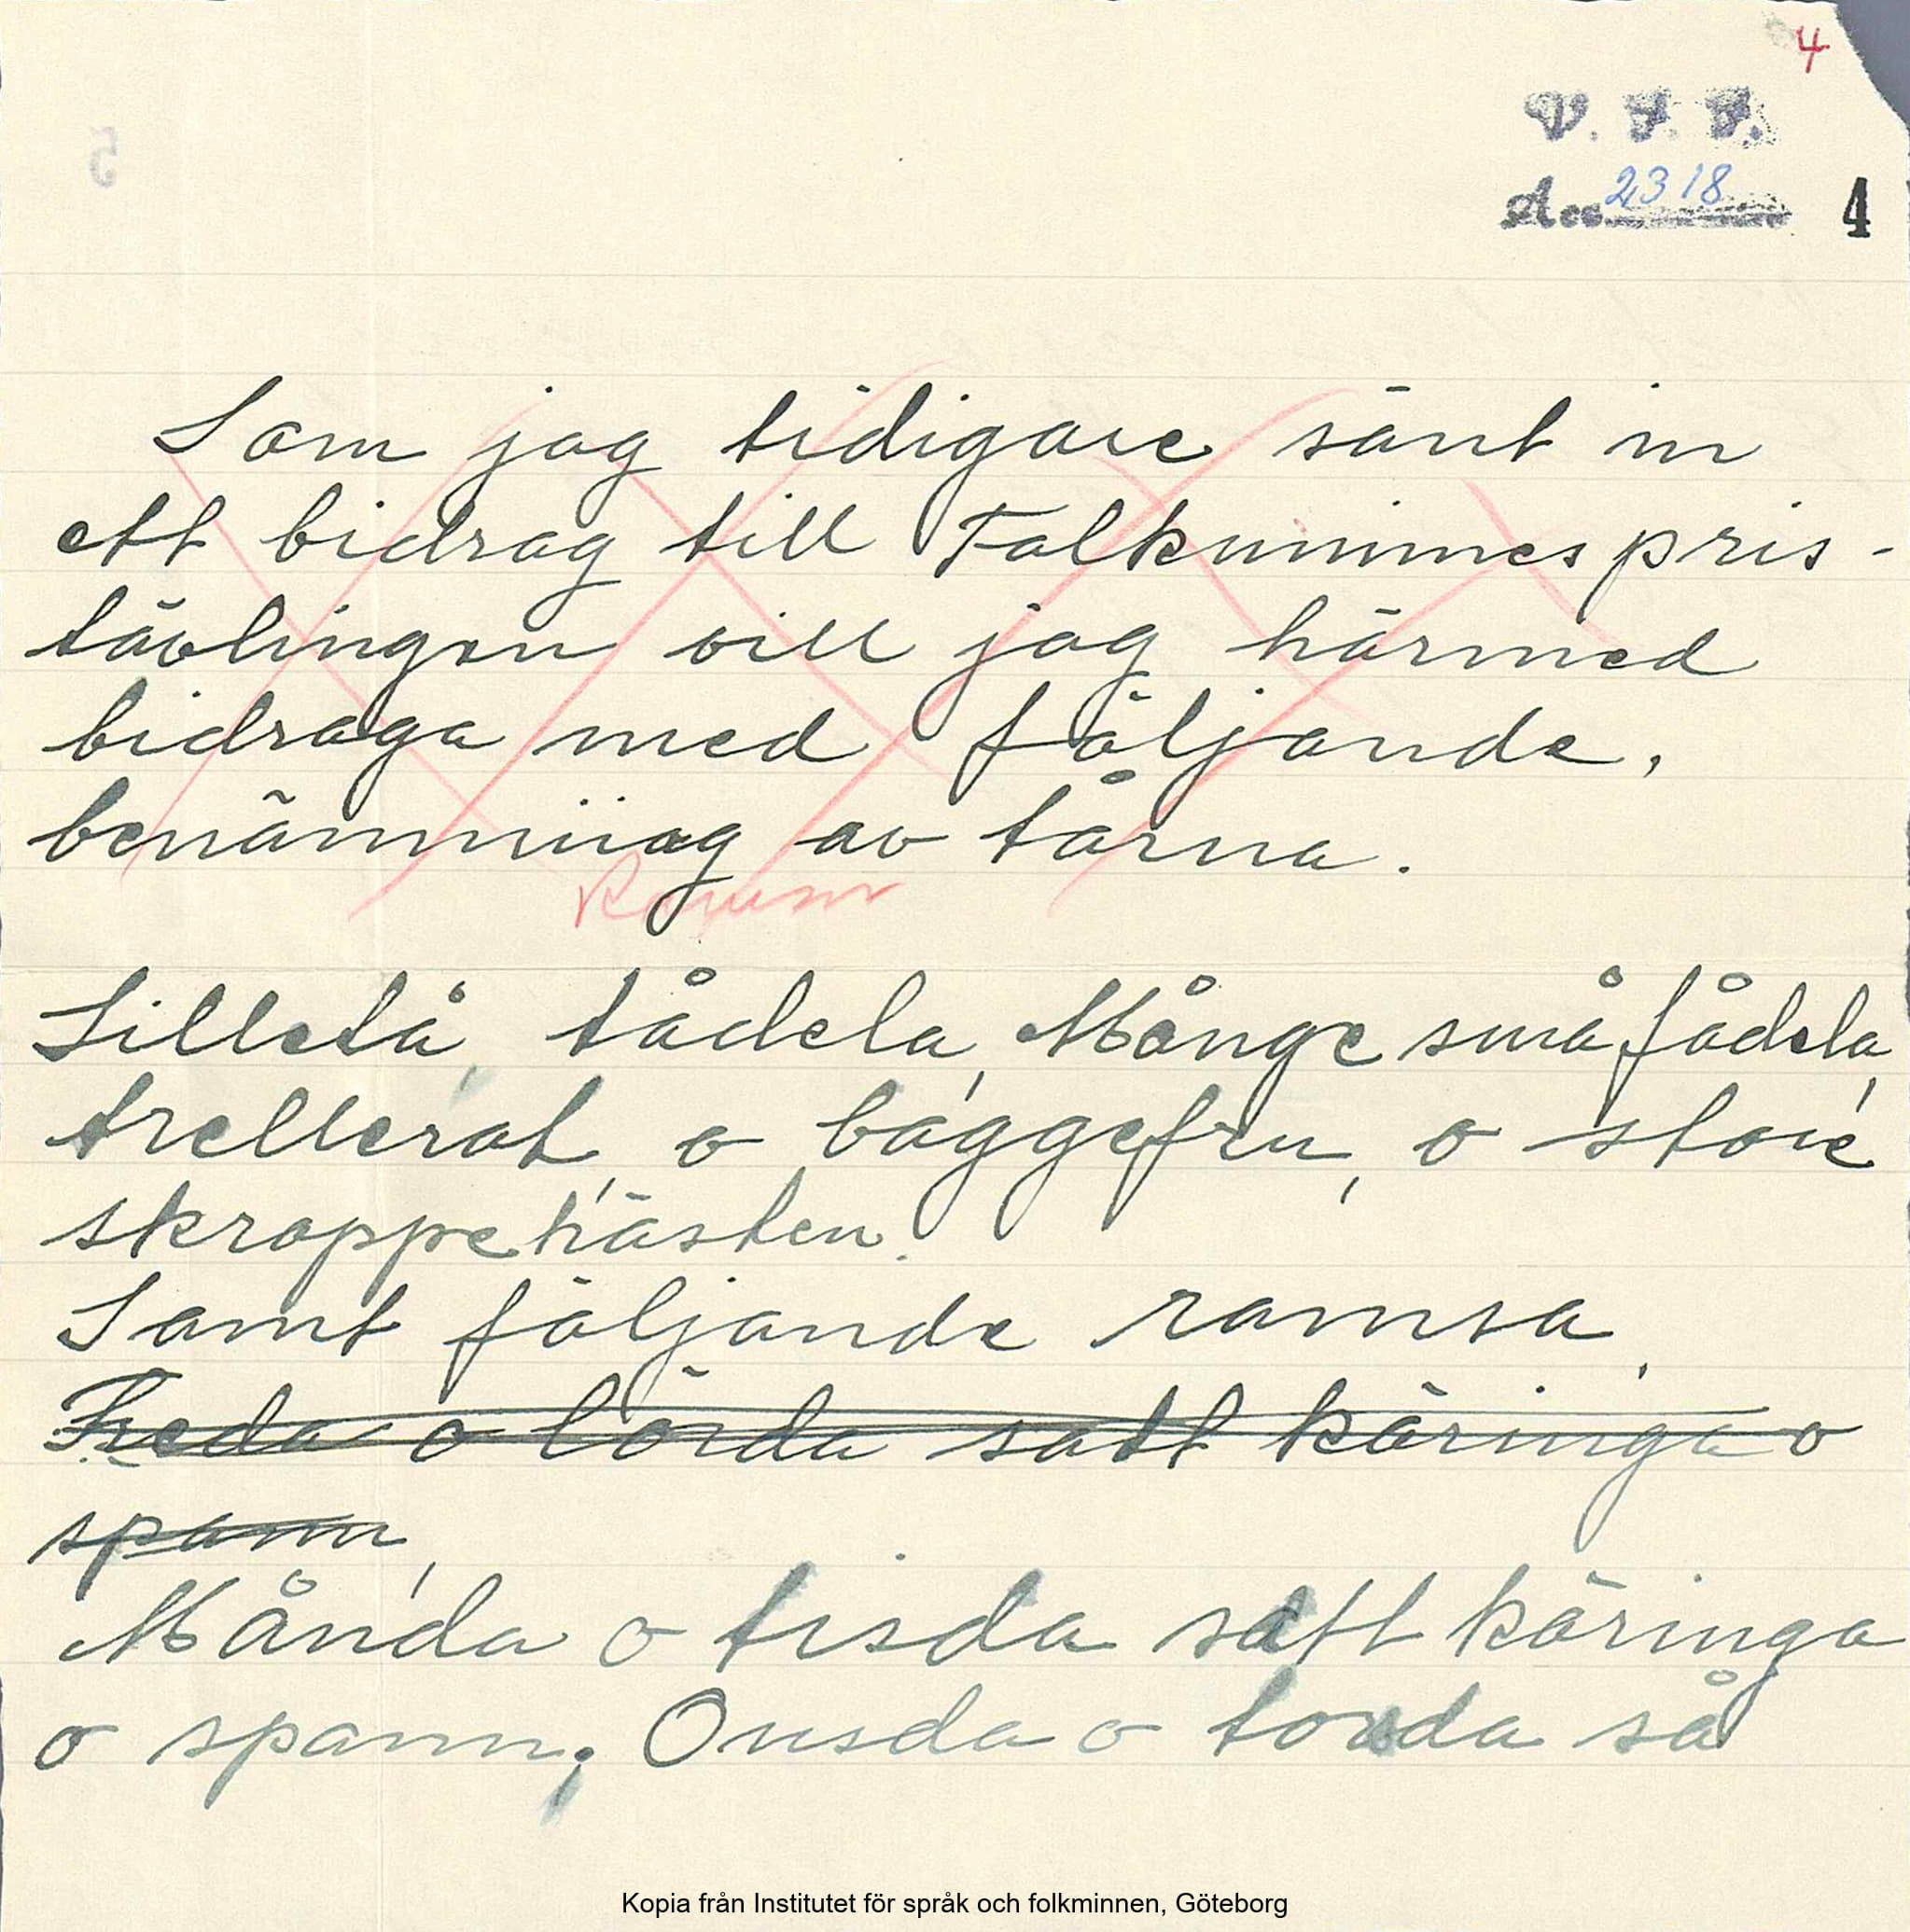 4
V. F. F.
Acc. 2318 4
5
Som jag tidigare sänt in
ett bidrag till Folkminnespris-
tävlingen vill jag härmed
bidraga med följande,
benämning av tårna.
Ramsor
Lilletå, tådela, Månge små fådela,
trellerot, o båggefru, o store
skroppehästen.
Samt följande ramsa,
Freda o lörda satt käringa o
spann,
Månda o tisda satt käringa
o spann, Onsda o torsda så
Kopia från Institutet för språk och folkminnen, Göteborg